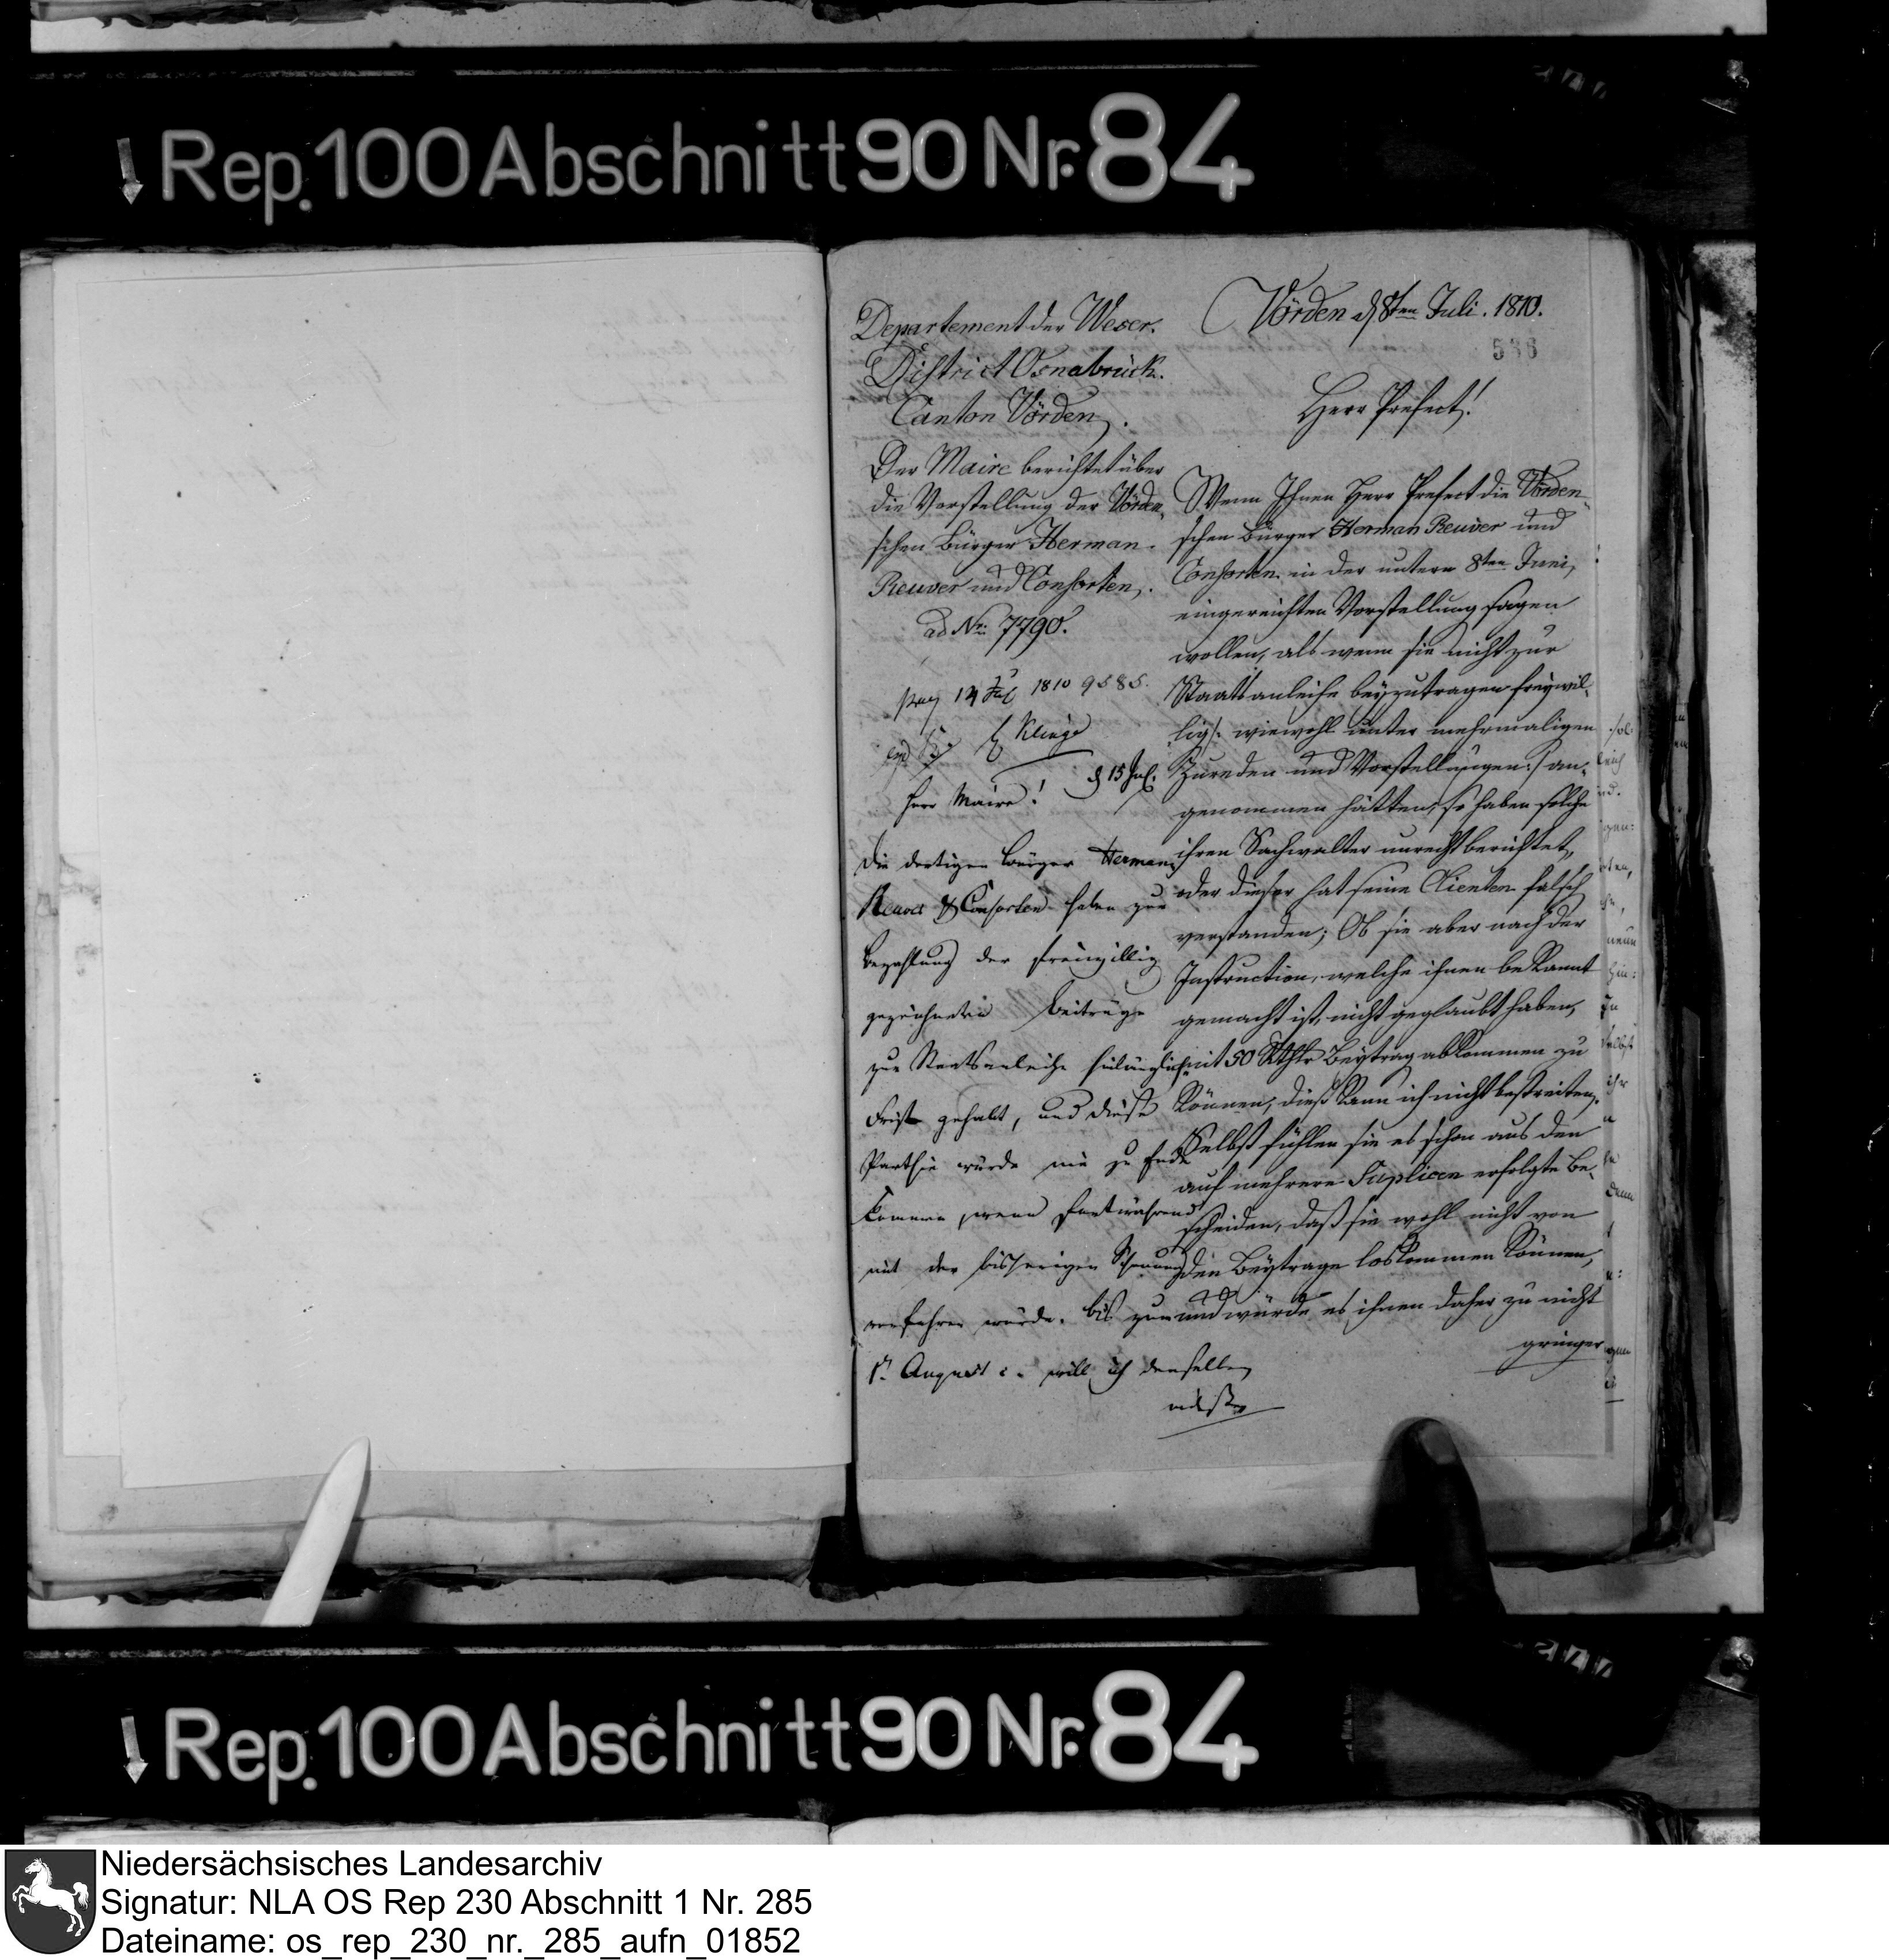 Rep. 100 Abschnitt 90 Nr. 84
Departement der Weser.
District Osnabrück.
Canton Vörden.
Der Maire berichtet über
die Vorstellung der Vörden-
schen Bürger Herman
Reuver und Consorten,.
ad Nr. 7790.
14 Jul 1810 9585.
Klinge
Herr Maire! d 15 Jul.
Die dortigen Bürger Herman
Reuver & Consorten haben zur
Bezahlung der freiwillig
gezeichneten Beiträge
zur Staatsanleihe hinlänglich
Frist gehabt, und diese
Parthie würde nie zu Ende
kommen, wenn fortwährend
mit der bisherigen Schonung
verfahren würde. Bis zum
1n August c. will ich denselben
Vörden d 8ten Juli. 1810.
536
Herr Prefect!
Wenn Ihnen Herr Prefect die Vörden-
schen Bürger Herman Reuver und
Consorten in der unterm 8ten Juni,
eingereichten Vorstellung sagen
wollen, als wenn sie nicht zur
Staatsanleihe beyzutragen freywil-
lig /: wiewohl unter mehrmaligen
Zureden und Vorstellungen :/ an-
genommen hätten, so haben solche
ihren Sachwalter unrecht berichtet,
oder dieser hat seine Clienten falsch
verstanden; Ob sie aber nach der
Instruction, welche ihnen bekannt
gemacht ist, nicht geglaubt haben,
mit 50 Rthlr Beytrag abkommen zu
können, dieß kann ich nicht bestreiten.
Selbst fühlen sie es schon aus den
auf mehrere Suplicen erfolgte Be-
scheiden, daß sie wohl nicht von
den Beytrage loskommen können,
und würde es ihnen daher zu nicht
gringer
Rep. 100 Abschnitt 90 Nr. 84
Niedersächsisches Landesarchiv
Signatur: NLA OS Rep 230 Abschnitt 1 Nr. 285
Dateiname: os_rep_230_nr._285_aufn_01852